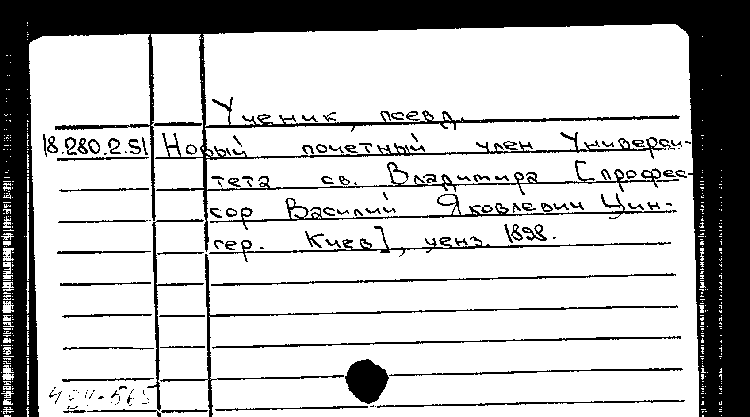 Ученик, псевд.
18.280.2.51 Новый почетный член Универси-
тета св. Владимира [профес-
сор Василий Яковлевич Цин-
гер. Киев], ценз. 1898.
484-565